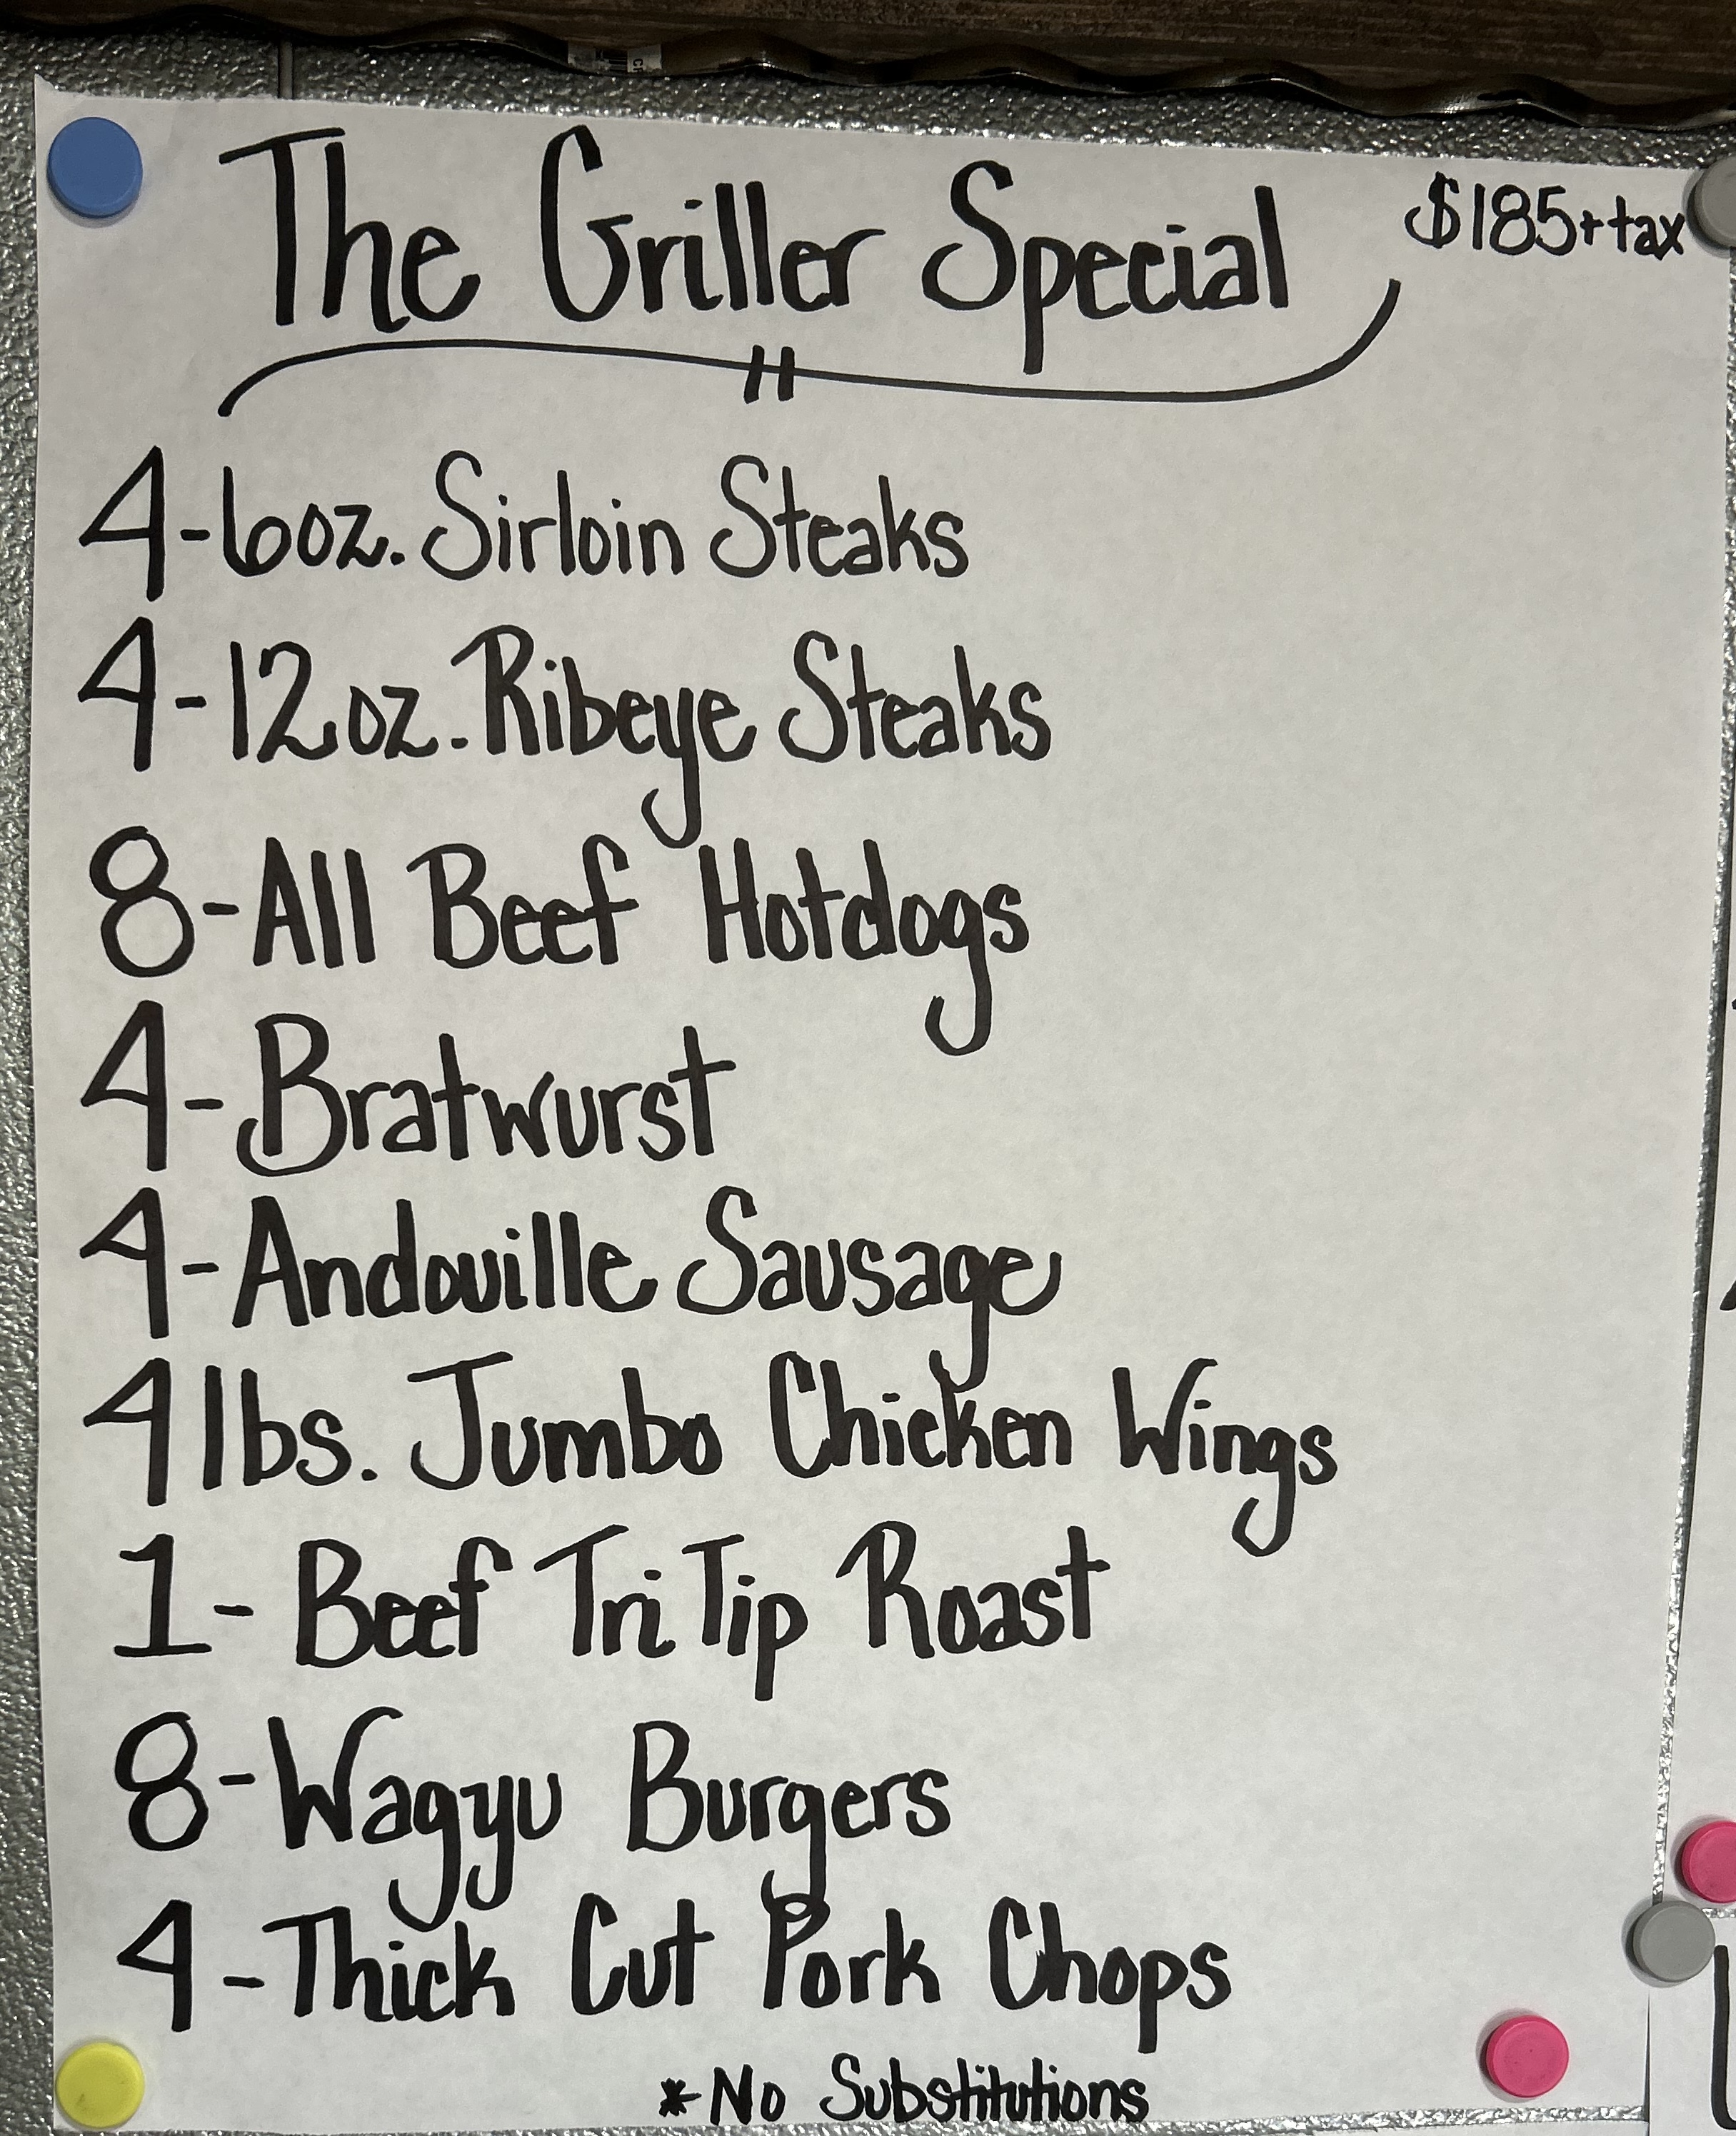 The Griller Special $185+tax
4-6oz. Sirloin Steaks
4-12oz. Ribeye Steaks
8-All Beef Hotdogs
4-Bratwurst
4-Andouille Sausage
4lbs. Jumbo Chicken Wings
1-Beef Tri Tip Roast
8-Wagyu Burgers
4-Thick Cut Pork Chops
*No Substitutions